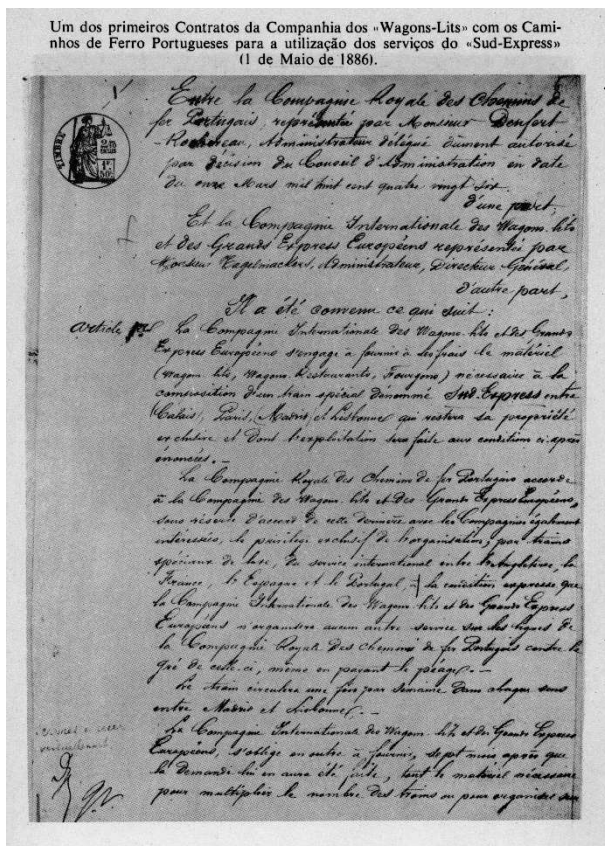 Um dos primeiros Contratos da Companhia dos «Wagons-Lits» com os Cami-
nhos de Ferro Portugueses para a utilização dos serviços do «Sud-Express»
(1 de Maio de 1886).
TIMBRE
Entre la Compagnie Royale des Chemins de
fer Portugais, représentée par Monsieur Denfert
Rochereau, Administrateur délégué dûment autorisé
par décision du Conseil d'Administration en date
du onze Mars mil huit cent quatre vingt six.
d'une part,
Et la Compagnie Internationale des Wagons-lits
et des Grands Express Européens représentée par
Monsieur Nagelmackers, Administrateur, Directeur Général,
d'autre part,
Il a été convenu ce qui suit :
article 1er La Compagnie Internationale des Wagons-lits et des Grands
Express Européens s'engage à fournir à ses frais le matériel
(Wagons-lits, Wagons-Restaurants, Fourgons) nécessaire à la
composition d'un train spécial dénommé Sud-Express entre
Calais, Paris, (Madrid) et Lisbonne qui restera sa propriété
exclusive et dont l'exploitation sera faite aux conditions ci-après
énoncées. —
La Compagnie Royale des Chemins de fer Portugais accorde
à la Compagnie des Wagons-lits et des Grands Express Européens,
sous réserve d'accord de cette dernière avec les Compagnies également
intéressées, le privilège exclusif de l'organisation, par trains
spéciaux de luxe, du service international entre l'Angleterre, la
France, l'Espagne et le Portugal, à la condition expresse que
la Compagnie Internationale des Wagons-lits et des Grands Express
Européens n'organisera aucun autre service sur les lignes de
la Compagnie Royale des chemins de fer Portugais contre le
gré de celle-ci, même en payant le péage. —
Ce train circulera une fois par semaine dans chaque sens
entre Madrid et Lisbonne. —
La Compagnie Internationale des Wagons-lits et des Grands Express
Européens, s'oblige en outre à fournir, sept mois après que
la demande lui en aura été faite, tout le matériel nécessaire
pour multiplier le nombre des trains ou pour organiser